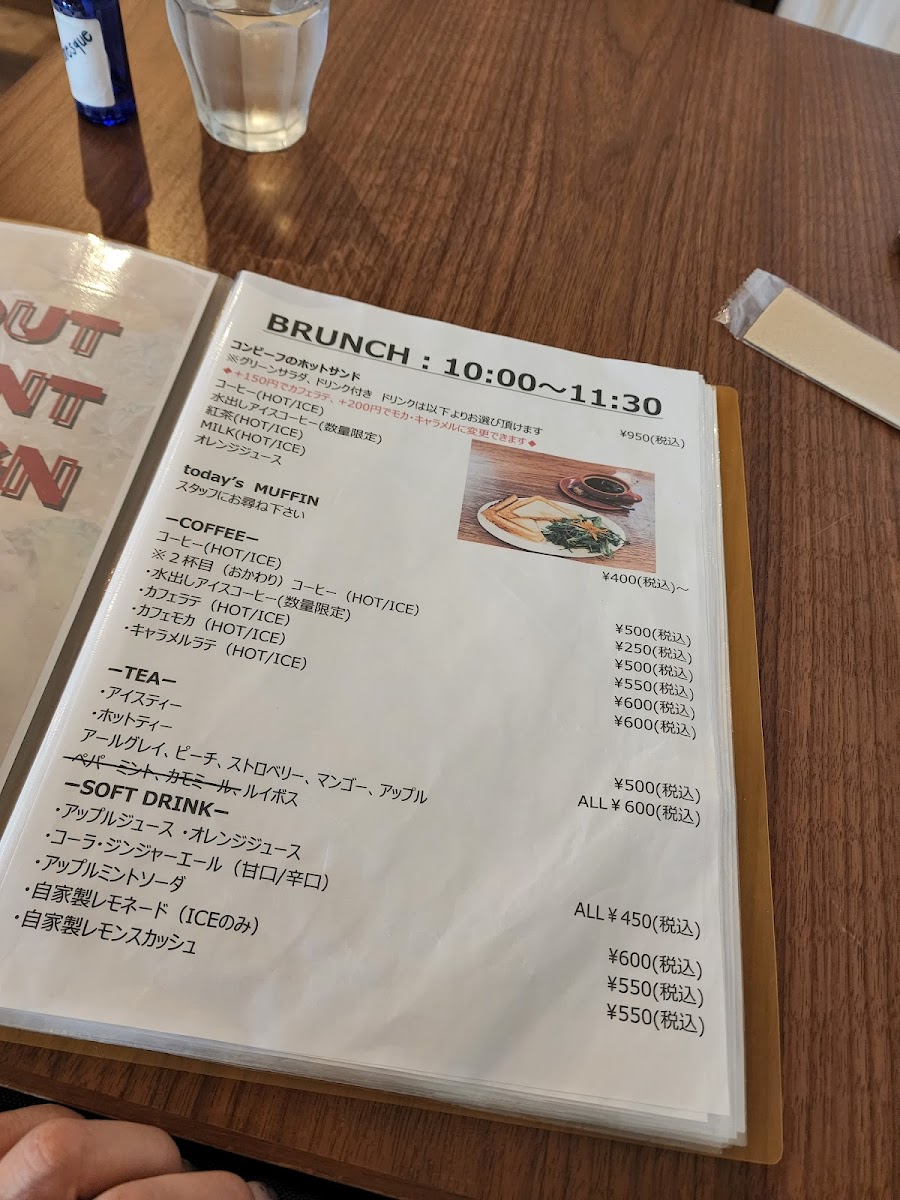 esque
OUT
NT
GN
BRUNCH：10:00～11:30
コンビーフのホットサンド ¥950(税込)
※グリーンサラダ、ドリンク付き ドリンクは以下よりお選び頂けます
◆+150円でカフェラテ、+200円でモカ・キャラメルに変更できます◆
コーヒー(HOT/ICE)
水出しアイスコーヒー(数量限定)
紅茶(HOT/ICE)
MILK(HOT/ICE)
オレンジジュース
today's MUFFIN ¥400(税込)～
スタッフにお尋ね下さい
ーCOFFEEー
コーヒー(HOT/ICE) ¥500(税込)
※２杯目（おかわり）コーヒー（HOT/ICE） ¥250(税込)
・水出しアイスコーヒー(数量限定) ¥500(税込)
・カフェラテ（HOT/ICE） ¥550(税込)
・カフェモカ（HOT/ICE） ¥600(税込)
・キャラメルラテ（HOT/ICE） ¥600(税込)
ーTEAー
・アイスティー ¥500(税込)
・ホットティー ALL￥600(税込)
アールグレイ、ピーチ、ストロベリー、マンゴー、アップル
ペパーミント、カモミール、ルイボス
ーSOFT DRINKー
・アップルジュース ・オレンジジュース
・コーラ・ジンジャーエール（甘口/辛口） ALL￥450(税込)
・アップルミントソーダ ¥600(税込)
・自家製レモネード（ICEのみ） ¥550(税込)
・自家製レモンスカッシュ ¥550(税込)